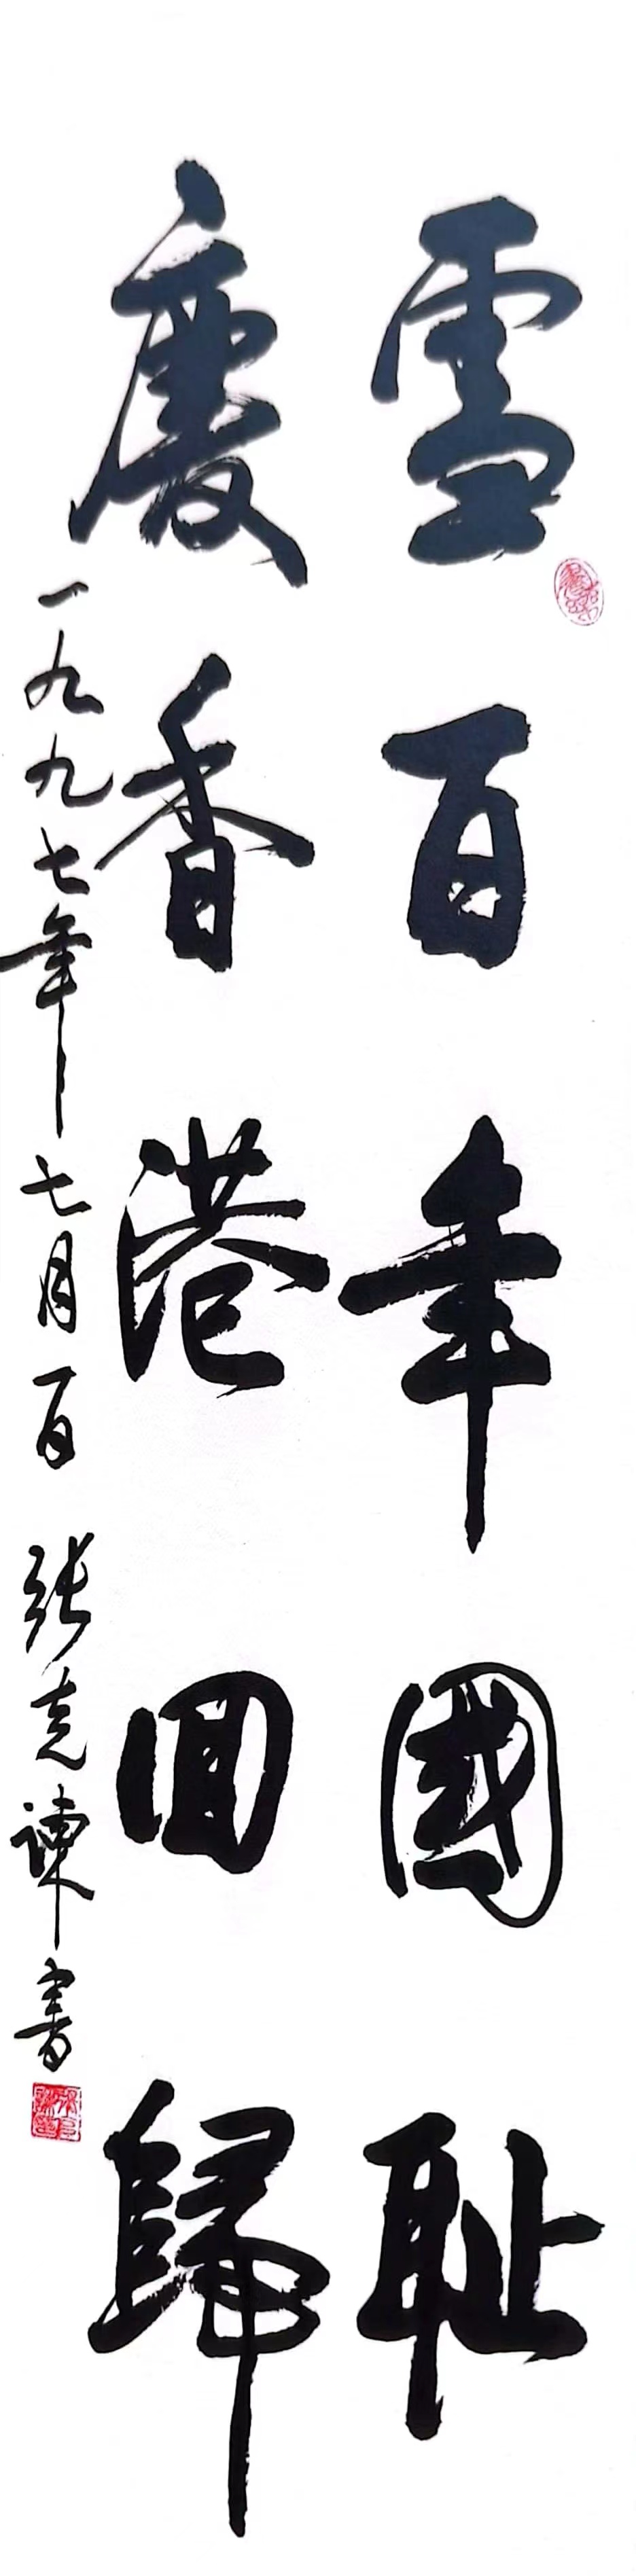 雪百年國耻
慶香港回歸
一九九七年七月一日 张克諫書